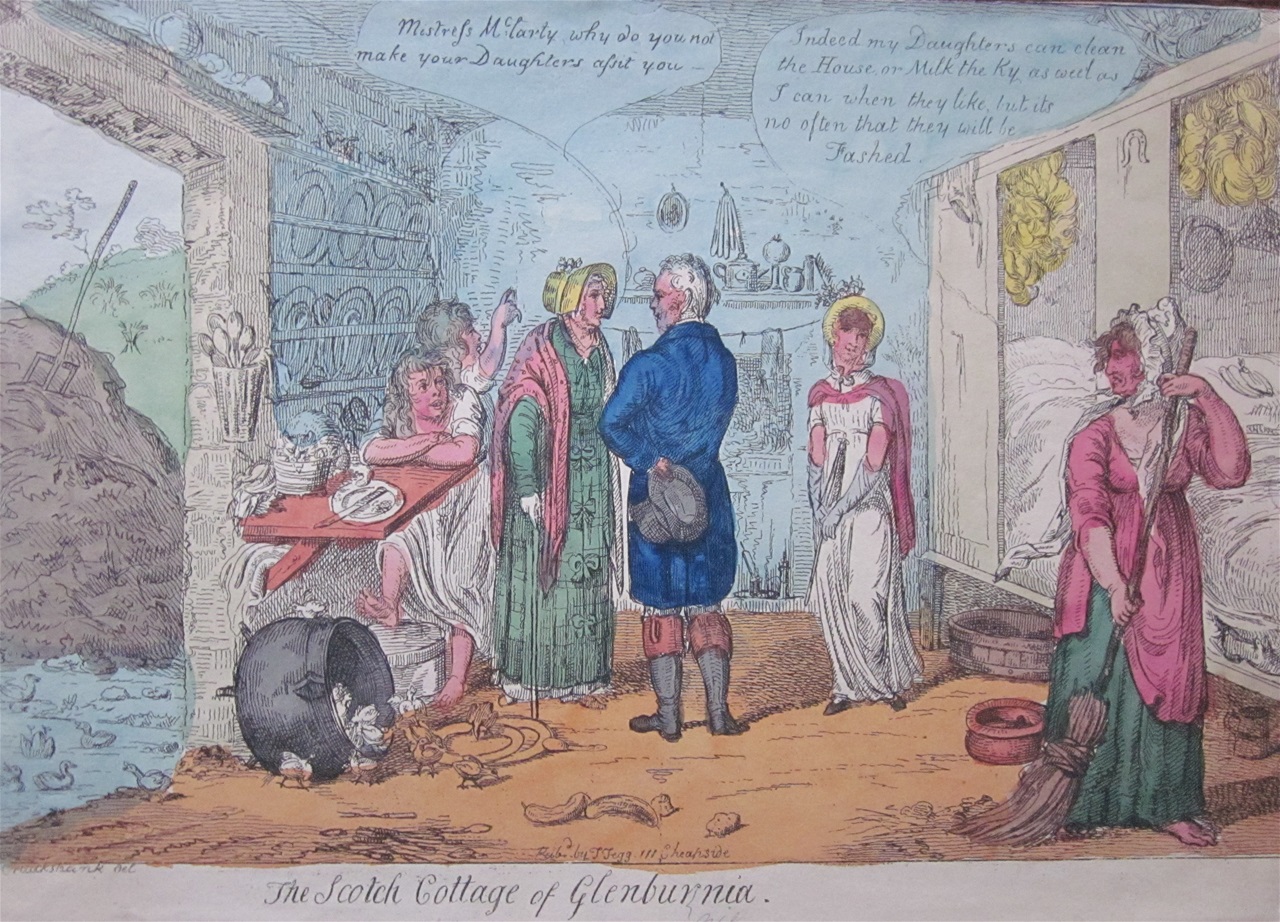 Mistreſs Mc.larty, why do you not
make your Daughters aſsit you —
Indeed my Daughters can clean
the House, or Milk the Ky, as weel as
I can when they like, but its
no often that they will be
Fashed.
Pubd. by T Tegg 111 Cheapside
Cruikshank del
The Scotch Cottage of Glenburnia.